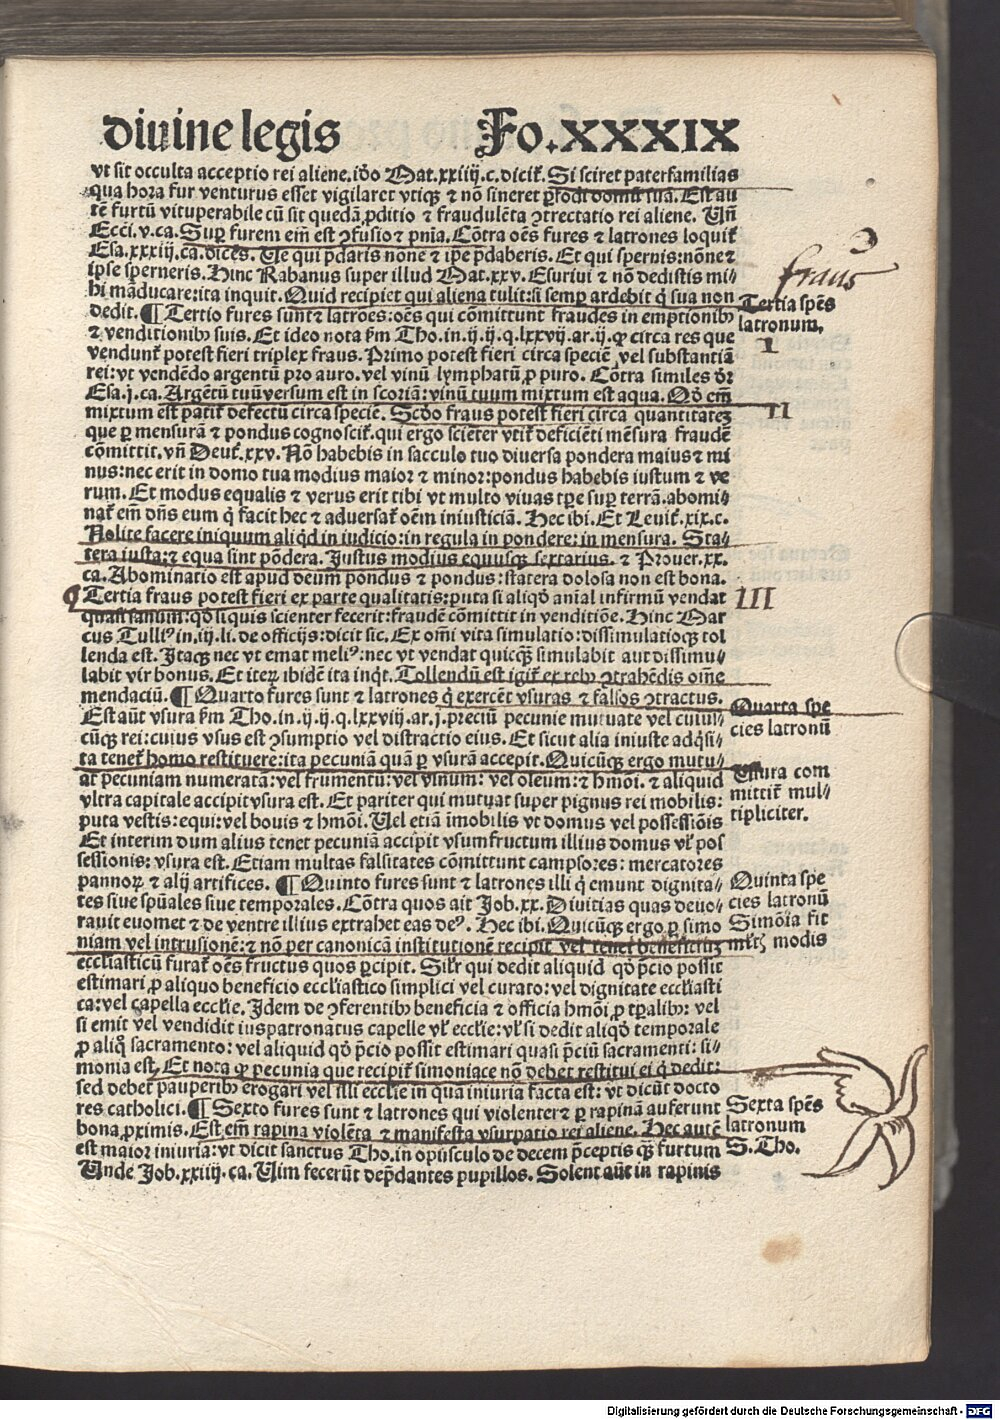 diuine legis Fo.XXXIX
vt sit occulta acceptio rei aliene.iõo Mat.xxiiij.c.dicit᷑. Si sciret paterfamilias
qua hora fur venturus esset vigilaret vtiqꝫ ⁊ nõ sineret ꝑfodi domũ suã. Est au
tẽ furtũ vituperabile cũ sit quedã ꝓditio ⁊ fraudulẽta ꝯtrectatio rei aliene. Vñ
Ecci.v.ca. Suꝑ furem eiñ est ꝯfusio ⁊ pnia. Cõtra oẽs fures ⁊ latrones loquit᷑
Esa.xxxiij.ca.dicẽs. Ve qui p̃daris none ⁊ ip̃e p̃daberis. Et qui spernis: nõne ⁊
ipse sperneris. Hinc Rabanus super illud Mat.xxv. Esuriui ⁊ nõ dedistis mi⸗
hi mãducare: ita inquit. Quid recipiet qui aliena tulit: si semꝑ ardebit q̇ sua non
dedit. ¶ Tertio fures sunt ⁊ latrões: oẽs qui cõmittunt fraudes in emptionibꝰ
⁊ venditionibꝰ suis. Et ideo nota ẜm Tho.in.ij.ij.q.lxxvij.ar.ij.ꝙ circa res que
vendunt᷑ potest fieri triplex fraus. Primo potest fieri circa speciẽ, vel substantiã
rei: vt vendẽdo argentũ pro auro. vel vinũ lymphatũ ꝓ puro. Cõtra similes dr̃
Esa.j.ca. Argẽtũ tuũ versum est in scoriã: vinũ tuum mixtum est aqua. Qd̃ em̃
mixtum est patit᷑ defectũ circa speciẽ. Scdo fraus potest fieri circa quantitateꝫ
que ꝑ mensurã ⁊ pondus cognoscit᷑. qui ergo sciẽter vtit᷑ deficiẽti mẽsura fraudẽ
cõmittit. vñ Deut᷑.xxv. Nõ habebis in sacculo tuo diuersa pondera maius ⁊ mi
nus: nec erit in domo tua modius maior ⁊ minor: pondus habebis iustum ⁊ ve
rum. Et modus equalis ⁊ verus erit tibi vt multo viuas tꝑe suꝑ terrã. abomi⸗
nat᷑ em̃ dñs eum q̇ facit hec ⁊ aduersat᷑ oẽm iniusticiã. Hec ibi. Et Leuit᷑.xix.c.
Nolite facere iniquum aliq̇d in iudicio: in regula in pondere: in mensura. Sta⸗
tera iusta: ⁊ equa sint põdera. Justus modius equusqꝫ sextarius. ⁊ Prouer.xx.
ca. Abominatio est apud deum pondus ⁊ pondus: statera dolosa non est bona.
Tertia fraus potest fieri ex parte qualitatis: puta si aliqõ anial infirmũ vendat
quasi sanum: qõ si quis scienter fecerit: fraudẽ cõmittit in venditiõe. Hinc Mar
cus Tulliꝰ in.iij.li. de officijs: dicit sic. Ex om̃i vita simulatio: dissimulatioqꝫ tol
lenda est. Itaqꝫ nec vt emat meliꝰ: nec vt vendat quicqꝫ simulabit aut dissimu⸗
labit vir bonus. Et iteꝝ ibidẽ ita inqt. Tollendũ est igit᷑ ex rebꝰ ꝯtrahẽdis om̃e
mendaciũ. ¶ Quarto fures sunt ⁊ latrones q̇ exercẽt vsuras ⁊ falsos ꝯtractus.
Est aũt vsura ẜm Tho.in.ij.ij.q.lxxviij.ar.j. preciũ pecunie mutuate vel cuius⸗
cũqꝫ rei: cuius vsus est ꝯsumptio vel distractio eius. Et sicut alia iniuste adq̇si⸗
ta tenet᷑ homo restituere: ita pecuniã quã ꝑ vsurã accepit. Quicũqꝫ ergo mutu⸗
at pecuniam numeratã: vel frumentũ: vel vinum: vel oleum: ⁊ hmõi. ⁊ aliquid
vltra capitale accipit vsura est. Et pariter qui mutuat super pignus rei mobilis:
puta vestis: equi: vel bouis ⁊ hmõi. Uel etiã im̃obilis vt domus vel possessiõis
Et interim dum alius tenet pecuniã accipit vsumfructum illius domus vł pos
sessionis: vsura est. Etiam multas falsitates cõmittunt campsores: mercatores
pannoꝝ ⁊ alij artifices. ¶ Quinto fures sunt ⁊ latrones illi q̇ emunt dignita⸗
tes siue spũales siue temporales. Cõtra quos ait Job.xx. Diuitias quas deuo⸗
rauit euomet ⁊ de ventre illius extrahet eas deꝰ. Hec ibi. Quicũqꝫ ergo ꝑ simo
niam vel intrusionẽ: ⁊ nõ per canonicã institutionẽ recipit vel tenet beneficiũ
ecclīasticũ furat᷑ oẽs fructus quos ꝑcipit. Silr̃ qui dedit aliquid qõ p̃cio possit
estimari ꝓ aliquo beneficio ecclīastico simplici vel curato: vel dignitate ecclīasti
ca: vel capella ecclīe. Idem de ꝯferentibꝰ beneficia ⁊ officia hmõi ꝓ tꝑalibꝰ: vel
si emit vel vendidit iuspatronatus capelle vł ecclīe: vł si dedit aliqõ temporale
ꝓ aliq̊ sacramento: vel aliquid qõ p̃cio possit estimari quasi p̃ciũ sacramenti: si⸗
monia est. Et nota ꝙ pecunia que recipit᷑ simoniace nõ debet restitui ei q̇ dedit:
sed debet pauperibꝰ erogari vel illi ecclīe in quã iniuria facta est: vt dicũt docto
res catholici. ¶ Sexto fures sunt ⁊ latrones qui violenter ⁊ ꝑ rapinã auferunt
bona ꝓximis. Est em̃ rapina violẽta ⁊ manifesta vsurpatio rei aliene. Hec autẽ
est maior iniuria: vt dicit sanctus Tho.in opusculo de decem p̃ceptis qꝫ furtum
Unde Job.xxiiij.ca. Uim fecerũt dep̃dantes pupillos. Solent aũt in rapinis
fraus
Tertia spẽs
latronum.
I
II
III
Quarta spe
cies latronũ
Usura com
mittit᷑ mul⸗
tipliciter.
Quinta spe
cies latronũ
Simõia fit
mĺtꝭ modis
Sexta spẽs
latronum
S. Tho.
Digitalisierung gefördert durch die Deutsche Forschungsgemeinschaft - DFG